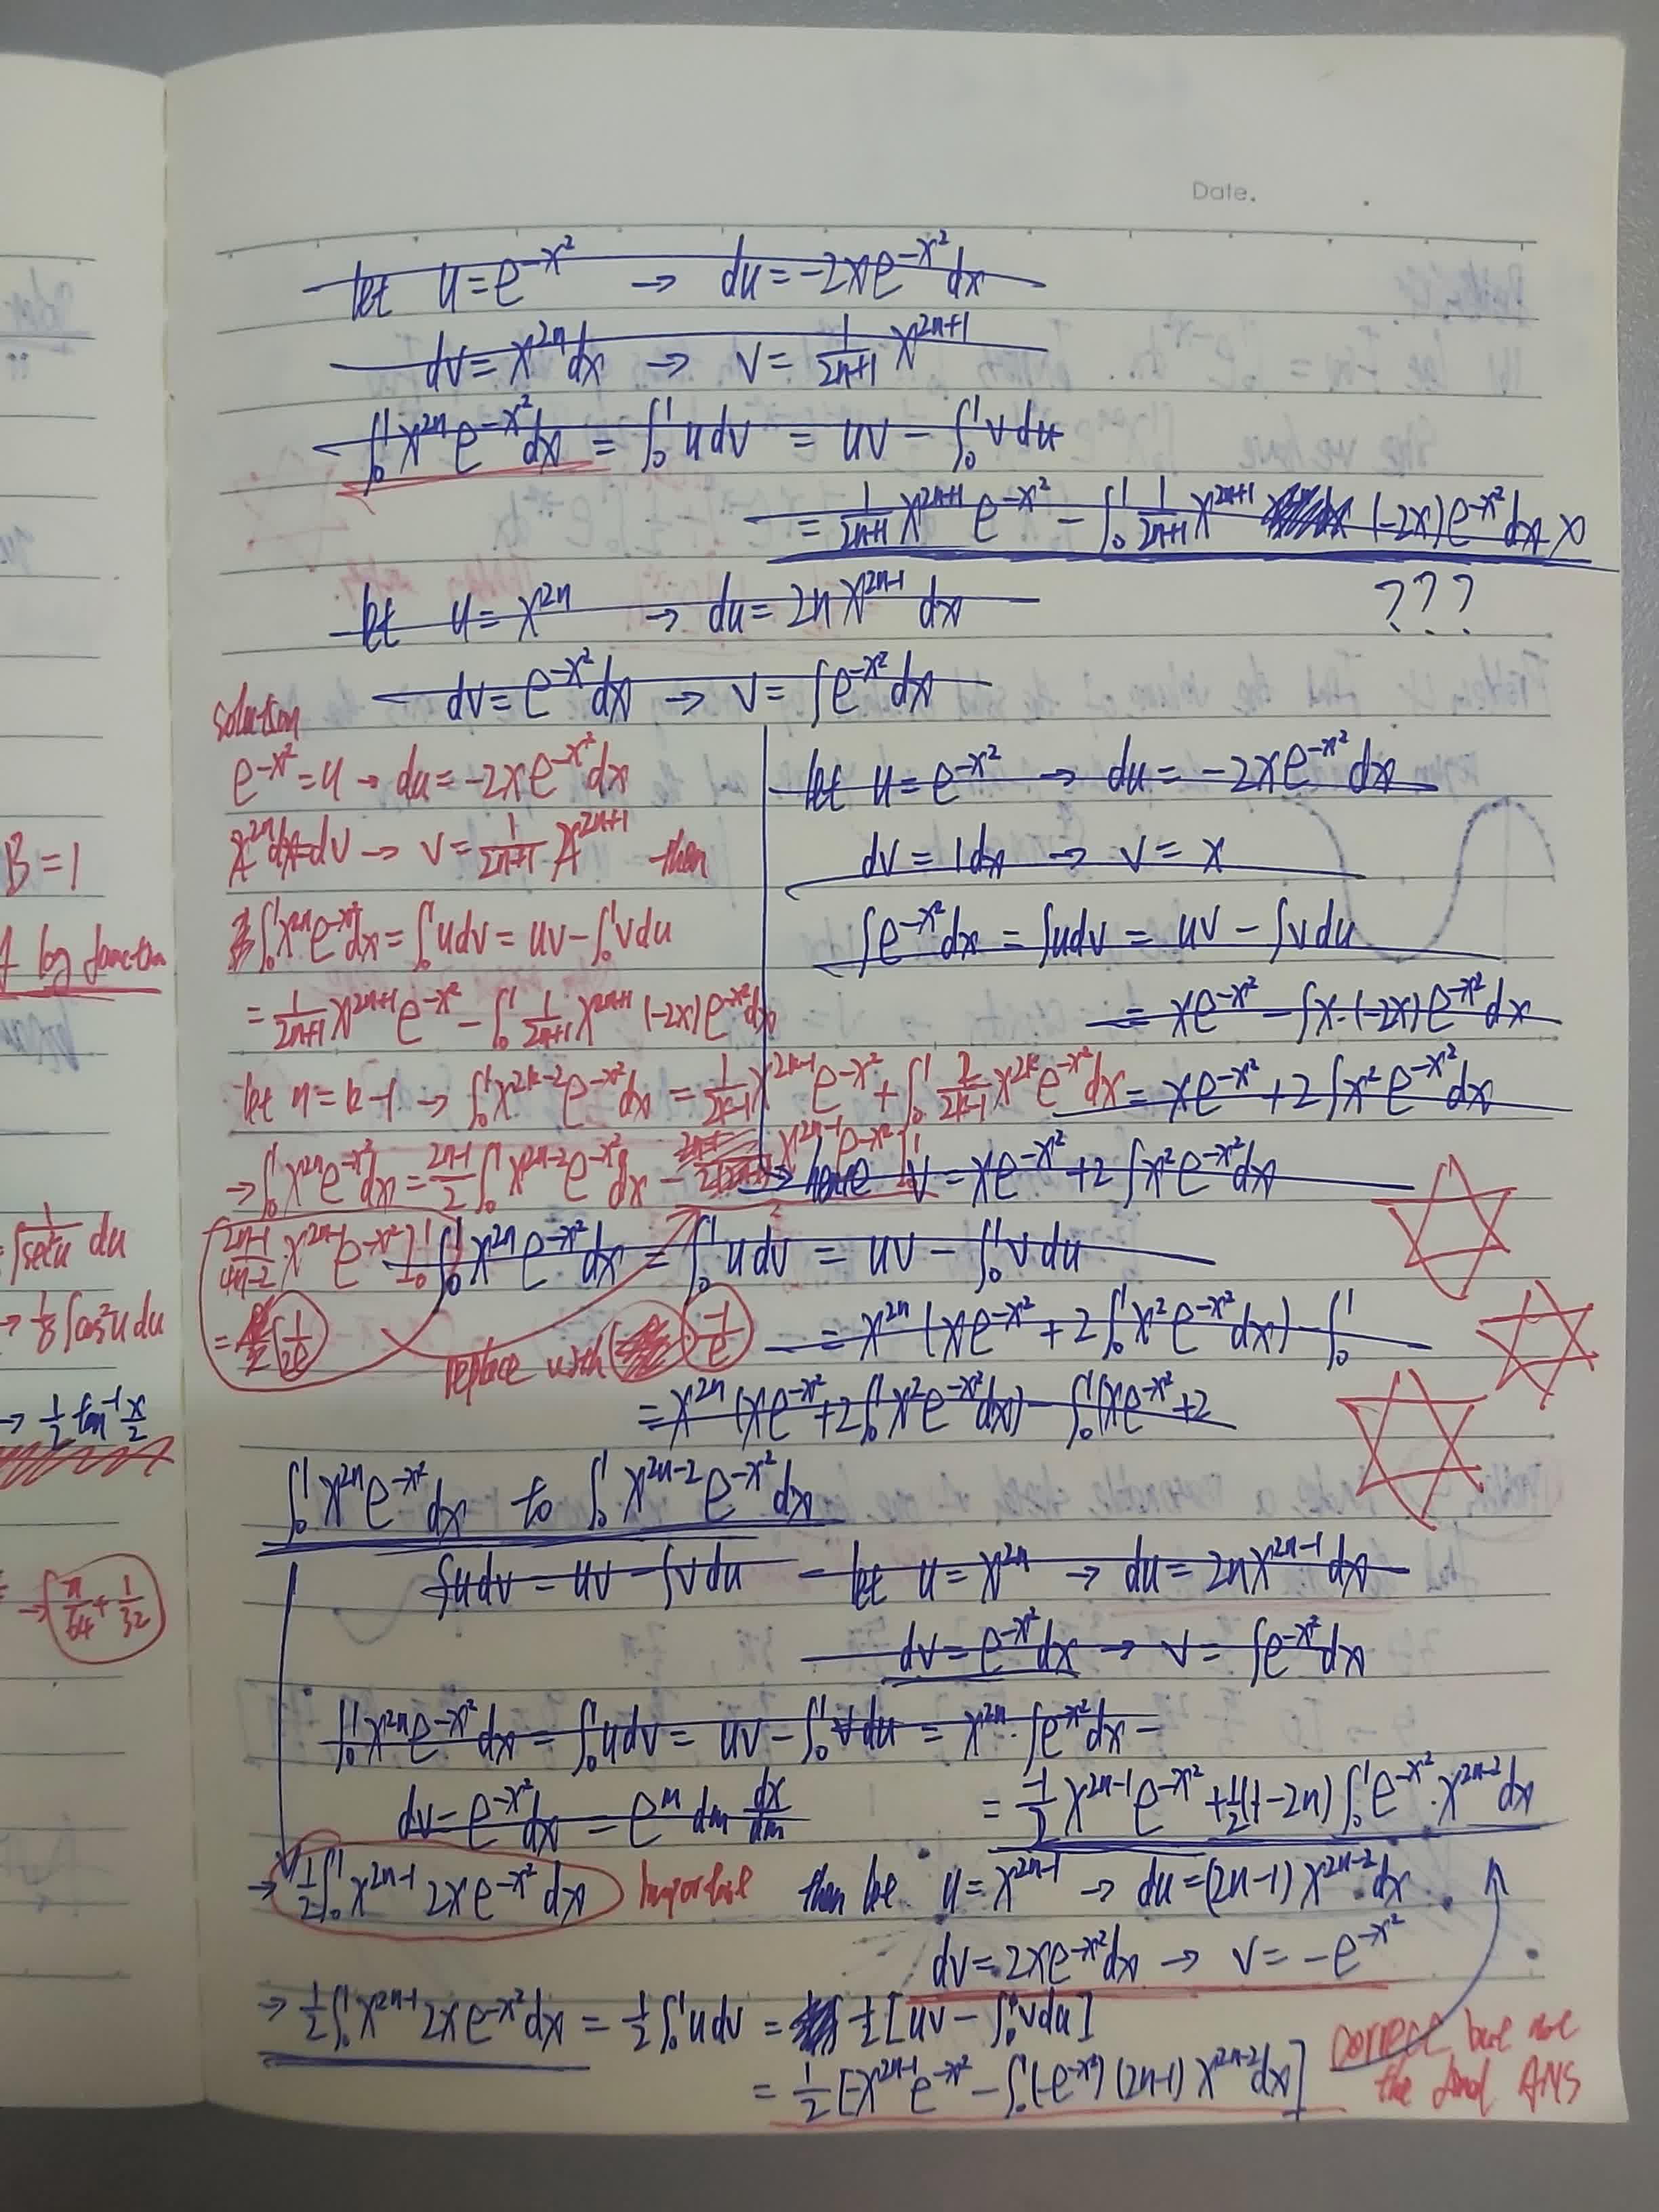 Date.
let u = e^{-x²} → du = -2xe^{-x²}dx
dv = x^{2n}dx → v = 1/(2n+1) x^{2n+1}
∫₀¹ x^{2n} e^{-x²}dx = ∫₀¹ u dv = uv - ∫₀¹ v du
= 1/(2n+1) x^{2n+1} e^{-x²} - ∫₀¹ 1/(2n+1) x^{2n+1} (-2x)e^{-x²}dx x
let u = x^{2n} → du = 2nx^{2n-1} dx
???
dv = e^{-x²}dx → v = ∫e^{-x²}dx
solution
e^{-x²} = u → du = -2xe^{-x²}dx
x^{2n}dx = dv → v = 1/(2n+1) x^{2n+1} then
∫₀¹ x^{2n}e^{-x²}dx = ∫₀¹ u dv = uv - ∫₀¹ v du
= 1/(2n+1) x^{2n+1} e^{-x²} - ∫₀¹ 1/(2n+1) x^{2n+1} (-2x)e^{-x²}dx
let n = k-1 → ∫₀¹ x^{2k-2} e^{-x²}dx = 1/(2k-1) x^{2k-1} e^{-x²} + ∫₀¹ 2/(2k-1) x^{2k} e^{-x²}dx
→ ∫₀¹ x^{2n}e^{-x²}dx = (2n-1)/2 ∫₀¹ x^{2n-2}e^{-x²}dx -
x^{2n-1}e^{-x²}]₀¹
(2n-1)/(4n-2) x^{2n-1} e^{-x²}]₀¹
= 1/2e
replace with
-1/e
let u = e^{-x²} → du = -2xe^{-x²}dx
dv = 1dx → v = x
∫e^{-x²}dx = ∫u dv = uv - ∫v du
= xe^{-x²} - ∫x·(-2x)e^{-x²}dx
= xe^{-x²} + 2∫x²e^{-x²}dx
→ hence v = xe^{-x²} + 2∫x²e^{-x²}dx
∫₀¹ x^{2n}e^{-x²}dx = ∫₀¹ u dv = uv - ∫₀¹ v du
= x^{2n}(xe^{-x²} + 2∫₀¹ x²e^{-x²}dx) - ∫₀¹
= x^{2n}(xe^{-x²} + 2∫₀¹ x²e^{-x²}dx) - ∫₀¹ (xe^{-x²} + 2
∫₀¹ x^{2n}e^{-x²}dx to ∫₀¹ x^{2n-2}e^{-x²}dx
∫u dv = uv - ∫v du let u = x^{2n} → du = 2nx^{2n-1}dx
dv = e^{-x²}dx → v = ∫e^{-x²}dx
∫₀¹ x^{2n}e^{-x²}dx = ∫₀¹ u dv = uv - ∫₀¹ v du = x^{2n}·∫e^{-x²}dx -
dv = e^{-x²}dx = e^m dm dx/dm
= -1/2 x^{2n-1}e^{-x²} + 1/2(1-2n)∫₀¹ e^{-x²}·x^{2n-2}dx
→ 1/2 ∫₀¹ x^{2n-1} 2xe^{-x²}dx Important then let u = x^{2n-1} → du = (2n-1)x^{2n-2}dx
dv = 2xe^{-x²}dx → v = -e^{-x²}
→ 1/2 ∫₀¹ x^{2n-1} 2xe^{-x²}dx = 1/2 ∫₀¹ u dv = 1/2[uv - ∫₀¹ v du]
= 1/2[-x^{2n-1}e^{-x²} - ∫₀¹ (-e^{-x²})(2n-1)x^{2n-2}dx]
correct but not
the final ANS
B = 1
log function
= ∫ 1/sec²u du
→ 1/8 ∫cos²u du
→ 1/2 tan⁻¹ x/2
→ π/64 + 1/32